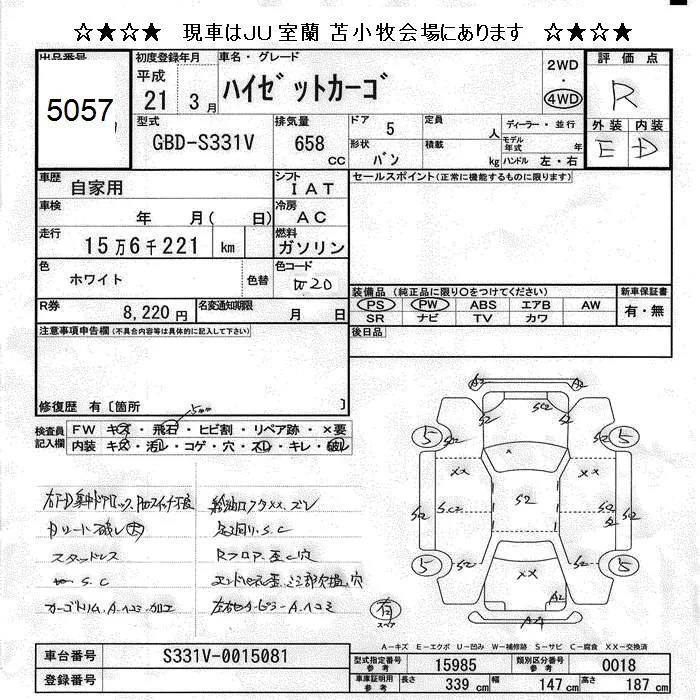 ☆★☆★ 現車はJU室蘭 苫小牧会場にあります ☆★☆★
出品番号
5057
初度登録年月
平成
21 3月
車名・グレード
ハイゼットカーゴ
2WD
・
4WD
評価点
R
外装 内装
E D
型式
GBD-S331V
排気量
658
cc
ドア 5
形状 バン
定員 人
積載 kg
ディーラー・並行
モデル年式 年
ハンドル 左・右
車歴 自家用
シフト IAT
車検 年 月( 日)
冷房 AC
走行 15万6千221 km
燃料 ガソリン
色 ホワイト 色替
色コード W20
R券 8,220円
名変通知期限 月 日
セールスポイント(正常に機能するものに限ります)
装備品 (純正品に限り○をつけてください)
PS PW ABS エアB AW
SR ナビ TV カワ
新車保証書
有・無
後日品
注意事項申告欄(不具合内容等は具体的に記入して下さい)
修復歴 有〔箇所 〕
5mm
検査員記入欄
FW キズ・飛石・ヒビ割・リペア跡・×要
内装 キズ・汚レ・コゲ・穴・スレ・キレ・破レ
スタッドレス
S.C
カーゴトリム.A.ヘコミ.加工
足回り.S.C
Rフロア.歪ミ穴
有
スペア
A2 A2
S2 S2
5 S2 S2 5
×
×× ××
S2 SC2 S2 SC2 S2
5 S2 S2 5
××
A2
AA
A-キズ E-エクボ U-凹み W-補修跡 S-サビ C-腐食 XX-交換済
車台番号 S331V-0015081
登録番号
型式指定番号 参考 15985
類別区分番号 参考 0018
車庫証明用 参考 長さ 339cm 幅 147cm 高さ 187cm